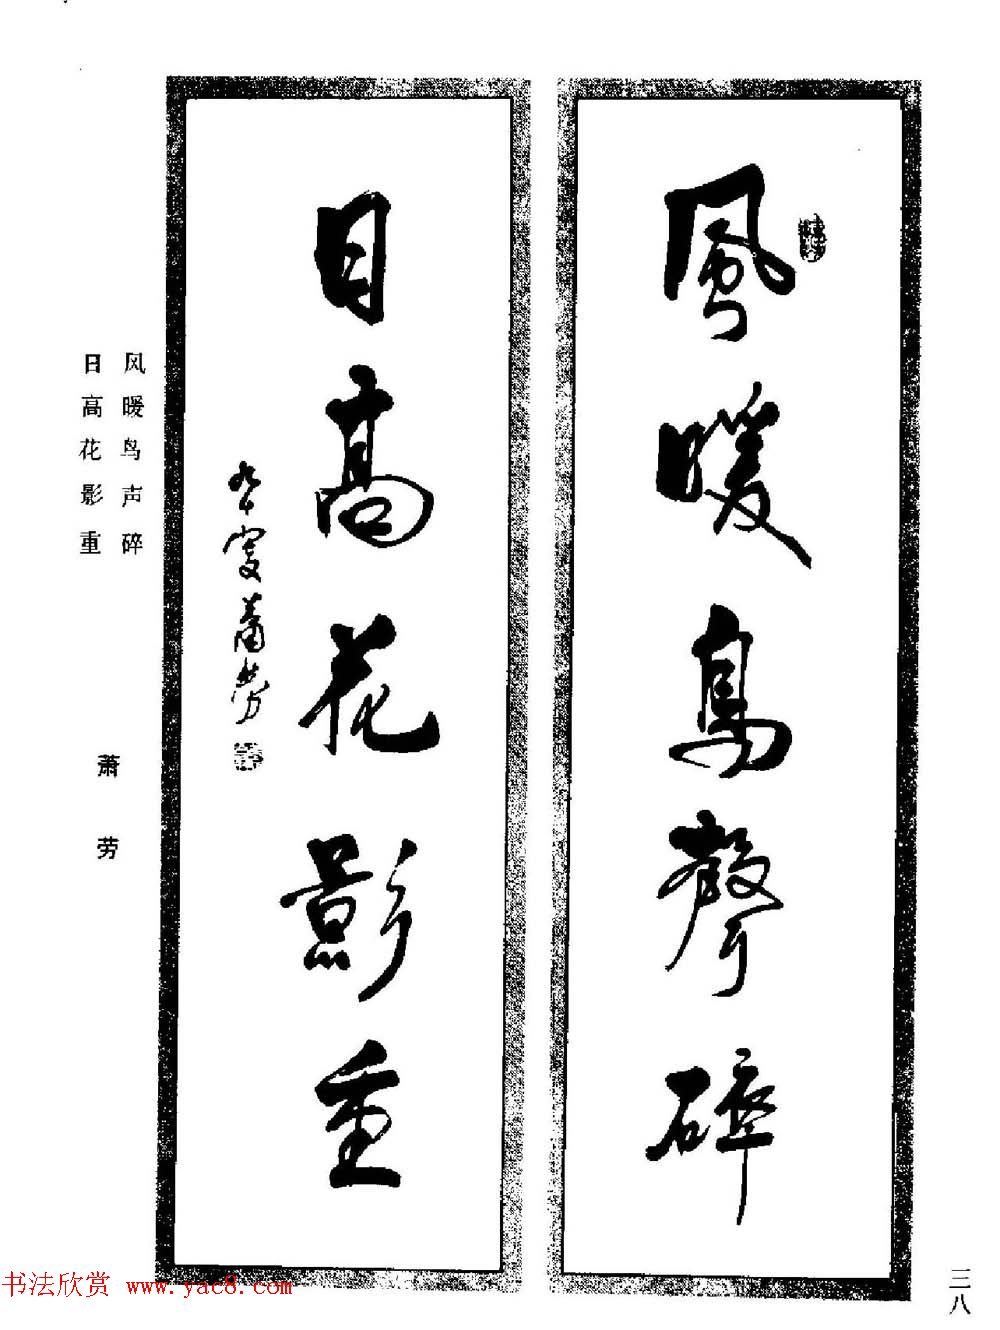 風暖鳥聲碎
日高花影重
九十叟蕭勞
风暖鸟声碎
日高花影重
萧劳
三八
书法欣赏 www.yac8.com